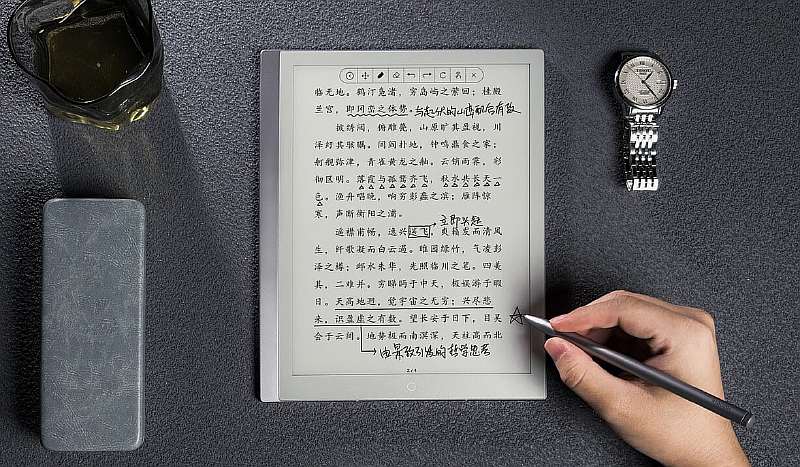 临无地。鹤汀凫渚，穷岛屿之萦回；桂殿
兰宫，即冈峦之体势。与起伏的山峦配合有致
披绣闼，俯雕甍，山原旷其盈视，川
泽纡其骇瞩。闾阎扑地，钟鸣鼎食之家；
舸舰弥津，青雀黄龙之舳。云销雨霁，彩
彻区明。落霞与孤鹜齐飞，秋水共长天一
色。渔舟唱晚，响穷彭蠡之滨；雁阵惊
寒，声断衡阳之浦。
立即兴起
遥襟甫畅，逸兴遄飞。爽籁发而清风
生，纤歌凝而白云遏。睢园绿竹，气凌彭
泽之樽；邺水朱华，光照临川之笔。四美
具，二难并。穷睇眄于中天，极娱游于暇
日。天高地迥，觉宇宙之无穷；兴尽悲
来，识盈虚之有数。望长安于日下，目吴
会于云间。地势极而南溟深，天柱高而北
由景致引发的哲学思考
TISSOT